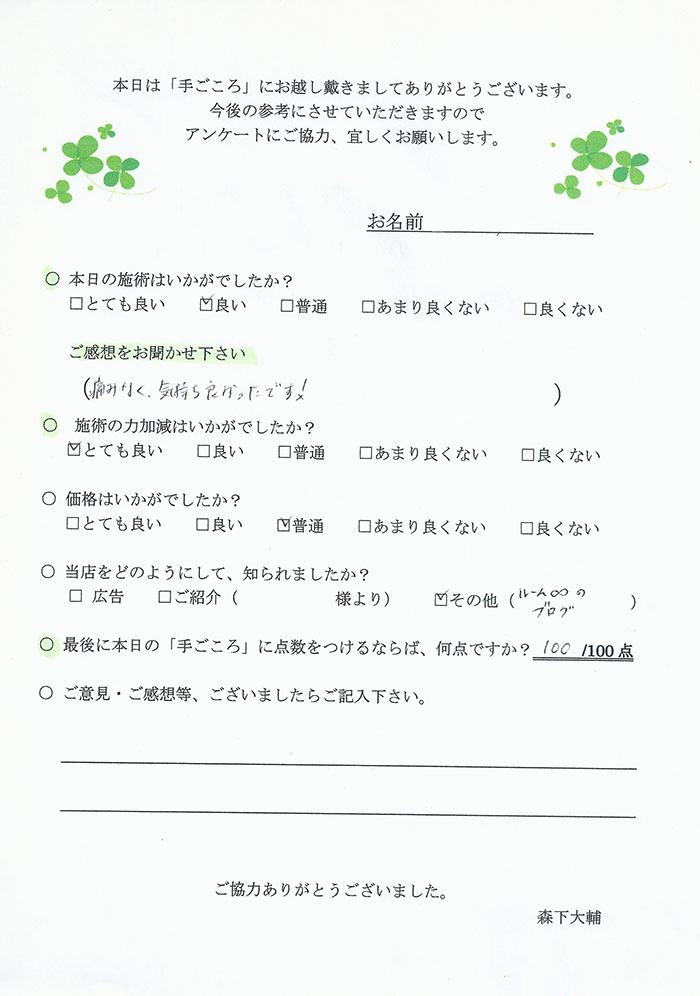 本日は「手ごころ」にお越し戴きましてありがとうございます。
今後の参考にさせていただきますので
アンケートにご協力、宜しくお願いします。
お名前
○ 本日の施術はいかがでしたか？
□とても良い ☑良い □普通 □あまり良くない □良くない
ご感想をお聞かせ下さい
(痛みなく、気持ち良かったです! )
○ 施術の力加減はいかがでしたか？
☑とても良い □良い □普通 □あまり良くない □良くない
○ 価格はいかがでしたか？
□とても良い □良い ☑普通 □あまり良くない □良くない
○ 当店をどのようにして、知られましたか？
□ 広告 □ご紹介（ 様より） ☑その他（ルーム∞の
ブログ ）
○ 最後に本日の「手ごころ」に点数をつけるならば、何点ですか？ 100 /100点
○ ご意見・ご感想等、ございましたらご記入下さい。
ご協力ありがとうございました。
森下大輔